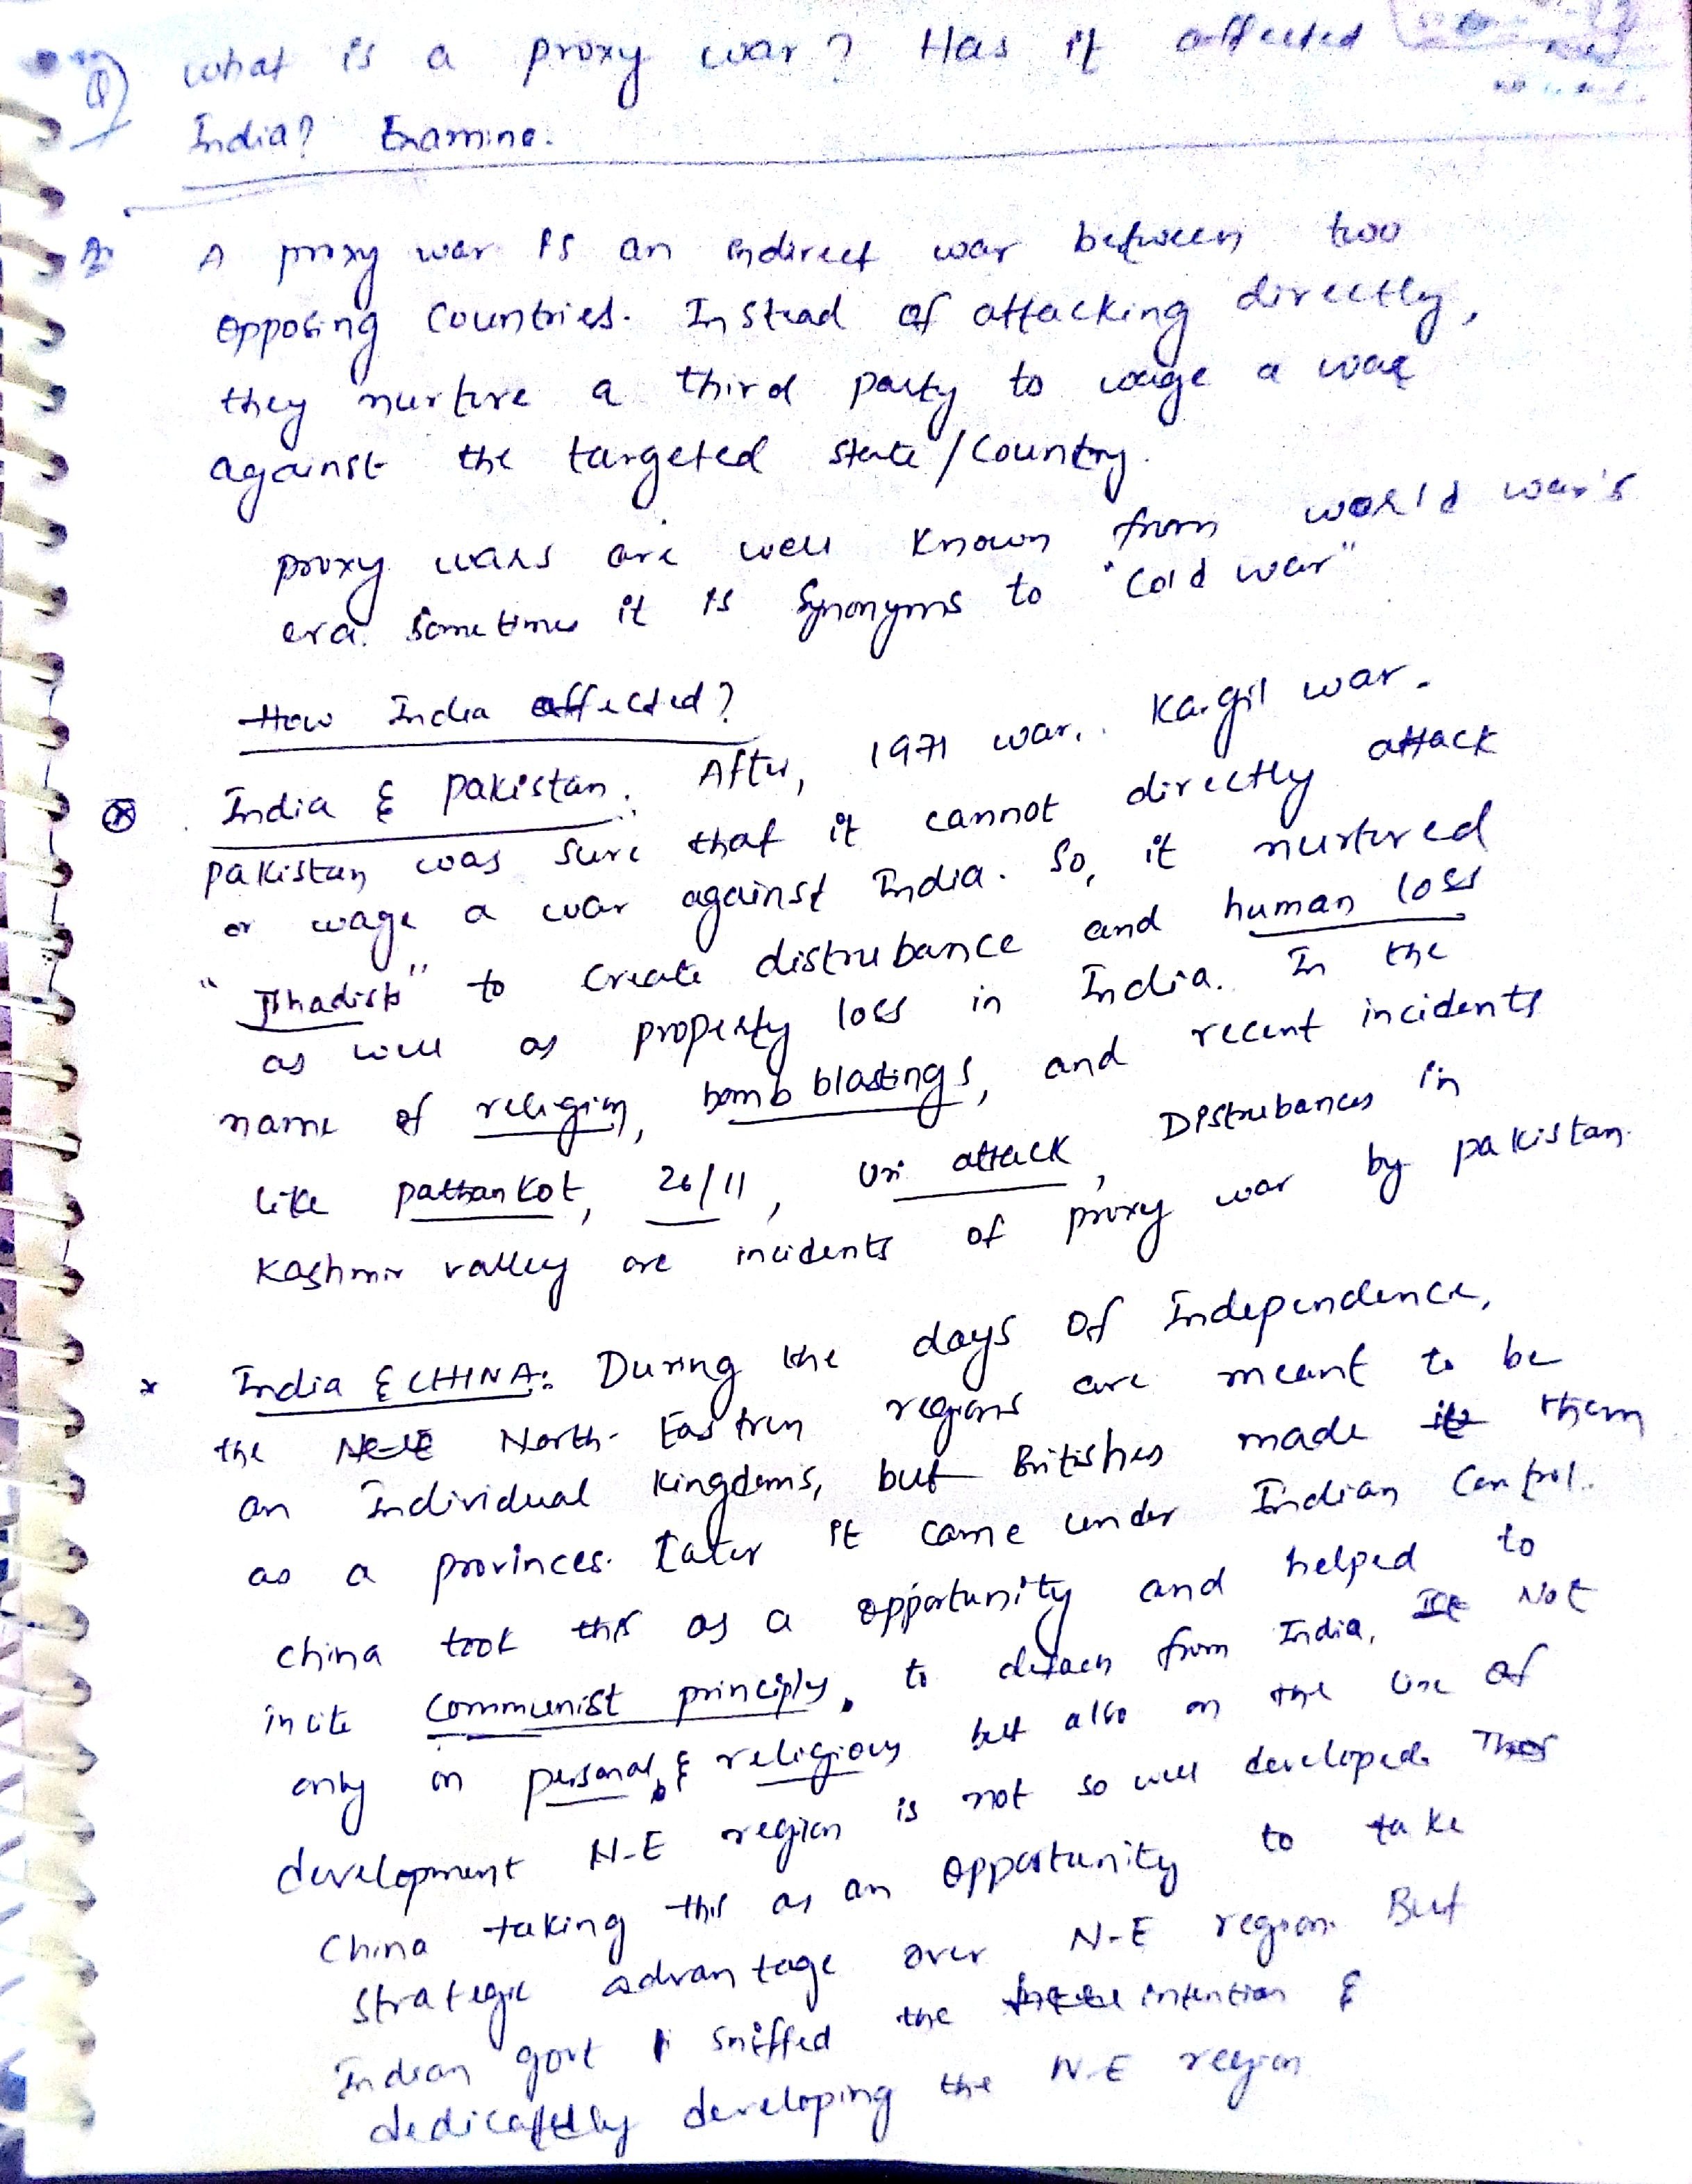 Q) what is a proxy war? Has it affected
India? Examine.
A proxy war is an indirect war between two
opposing countries. Instead of attacking directly,
they nurture a third party to waige a war
against the targeted state/country.
proxy wars are well known from world war's
era. Sometimes it is Synonyms to "Cold war"
How India affected?
India & Pakistan: After, 1971 war, Kargil war.
pakistan was sure that it cannot directly attack
or wage a war against India. So, it nurtured
"Jihadists" to create distrubance and human loss
as well as property loss in India. In the
name of religion, bomb blastings, and recent incidents
like pathankot, 26/11, Uri attack, Distrubances in
Kashmir valley are incidents of proxy war by pakistan.
* India & CHINA: During the days of Independence,
the North-Eastren regions are meant to be
an Individual kingdoms, but Britishes made them
as a provinces. Later it came under Indian Control.
China took this as a opportunity and helped to
incite communist principles, to detach from India, Not
only on personal & religious but also on the line of
development N-E region is not so well developed.
China taking this as an opportunity to take
strategic advantage over N-E region. But
Indian govt sniffed the intention &
dedicatedly developing the N-E region